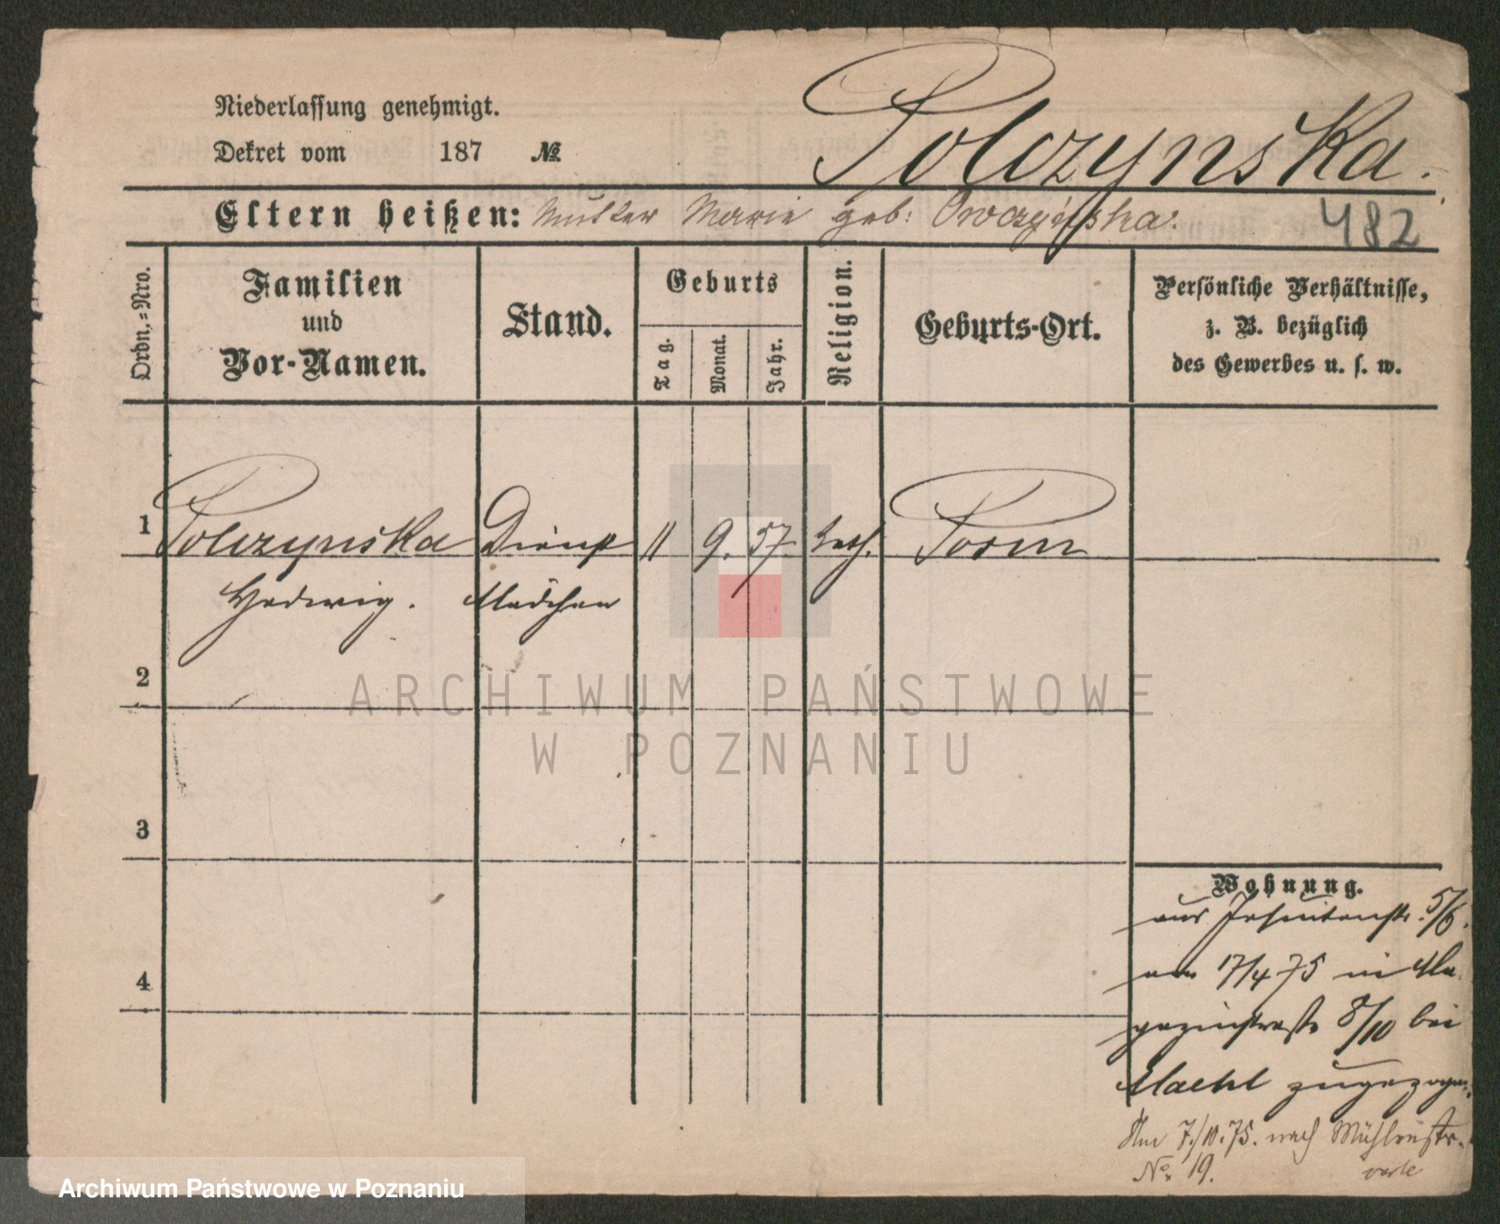 Niederlassung genehmigt.
Dekret vom 187 №
Polczynska.
Eltern heißen: Mutter Marie geb:
482
Ordn.=Nro.
Familien
und
Vor-Namen.
Stand.
Geburts
Tag.
Monat.
Jahr.
Religion.
Geburts-Ort.
Persönliche Verhältnisse,
z. B. bezüglich
des Gewerbes u. s. w.
1 Polczynska Dienst 11 9. 57. kath. Posen
Hedwig. Mädchen
2
ARCHIWUM PAŃSTWOWE
W POZNANIU
3
4
Wohnung.
aus Jesuitenstr. 5/6.
am 17/4 75 in Ma
gazinstraße 8/10 bei
zugezogen.
Am 7./11.75. nach Mühlenstr.
No. 19. verte
Archiwum Państwowe w Poznaniu